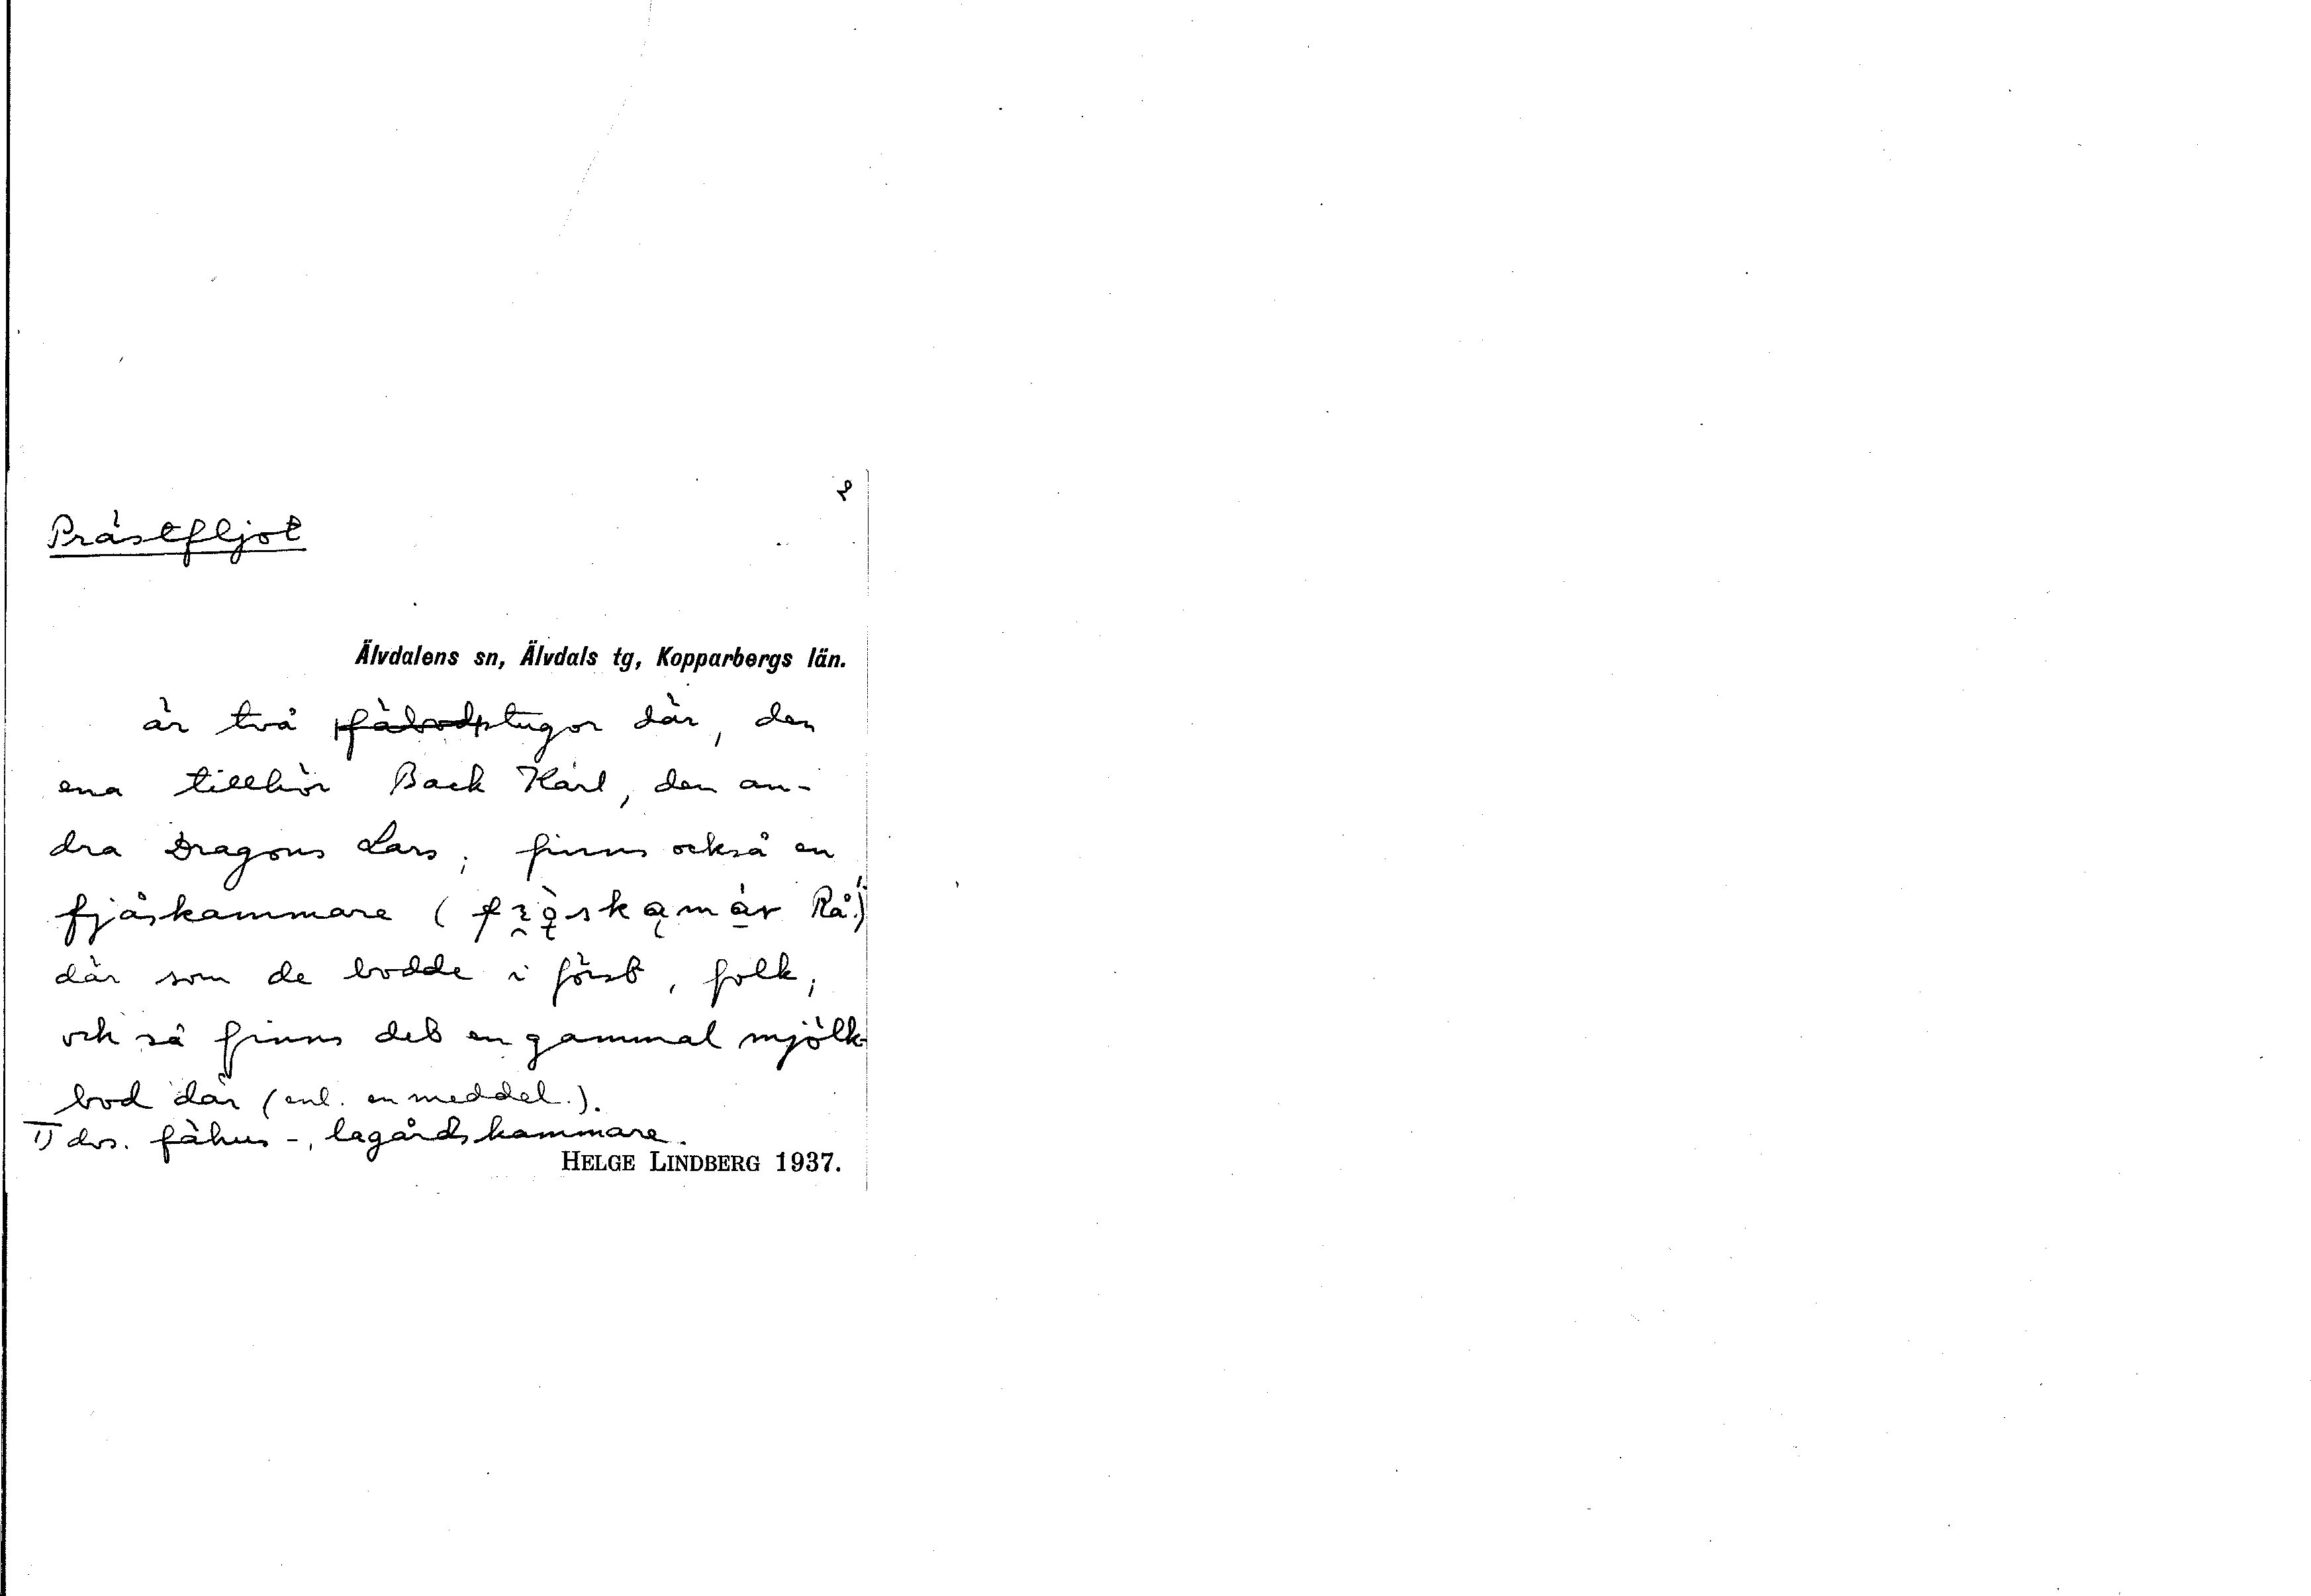 2
Prästfljot
Älvdalens sn, Älvdals tg, Kopparbergs län.
är två fäbodstugor där, den
ena tillhör Back Karl, den an-
dra Dragons Lars; finns också en
fjåskammare ( Rå.)¹⁾
där som de bodde i först, folk;
och så finns det en gammal mjölk-
bod där (enl. en meddel.).
1) dvs. fähus-, lagårdskammare.
HELGE LINDBERG 1937.